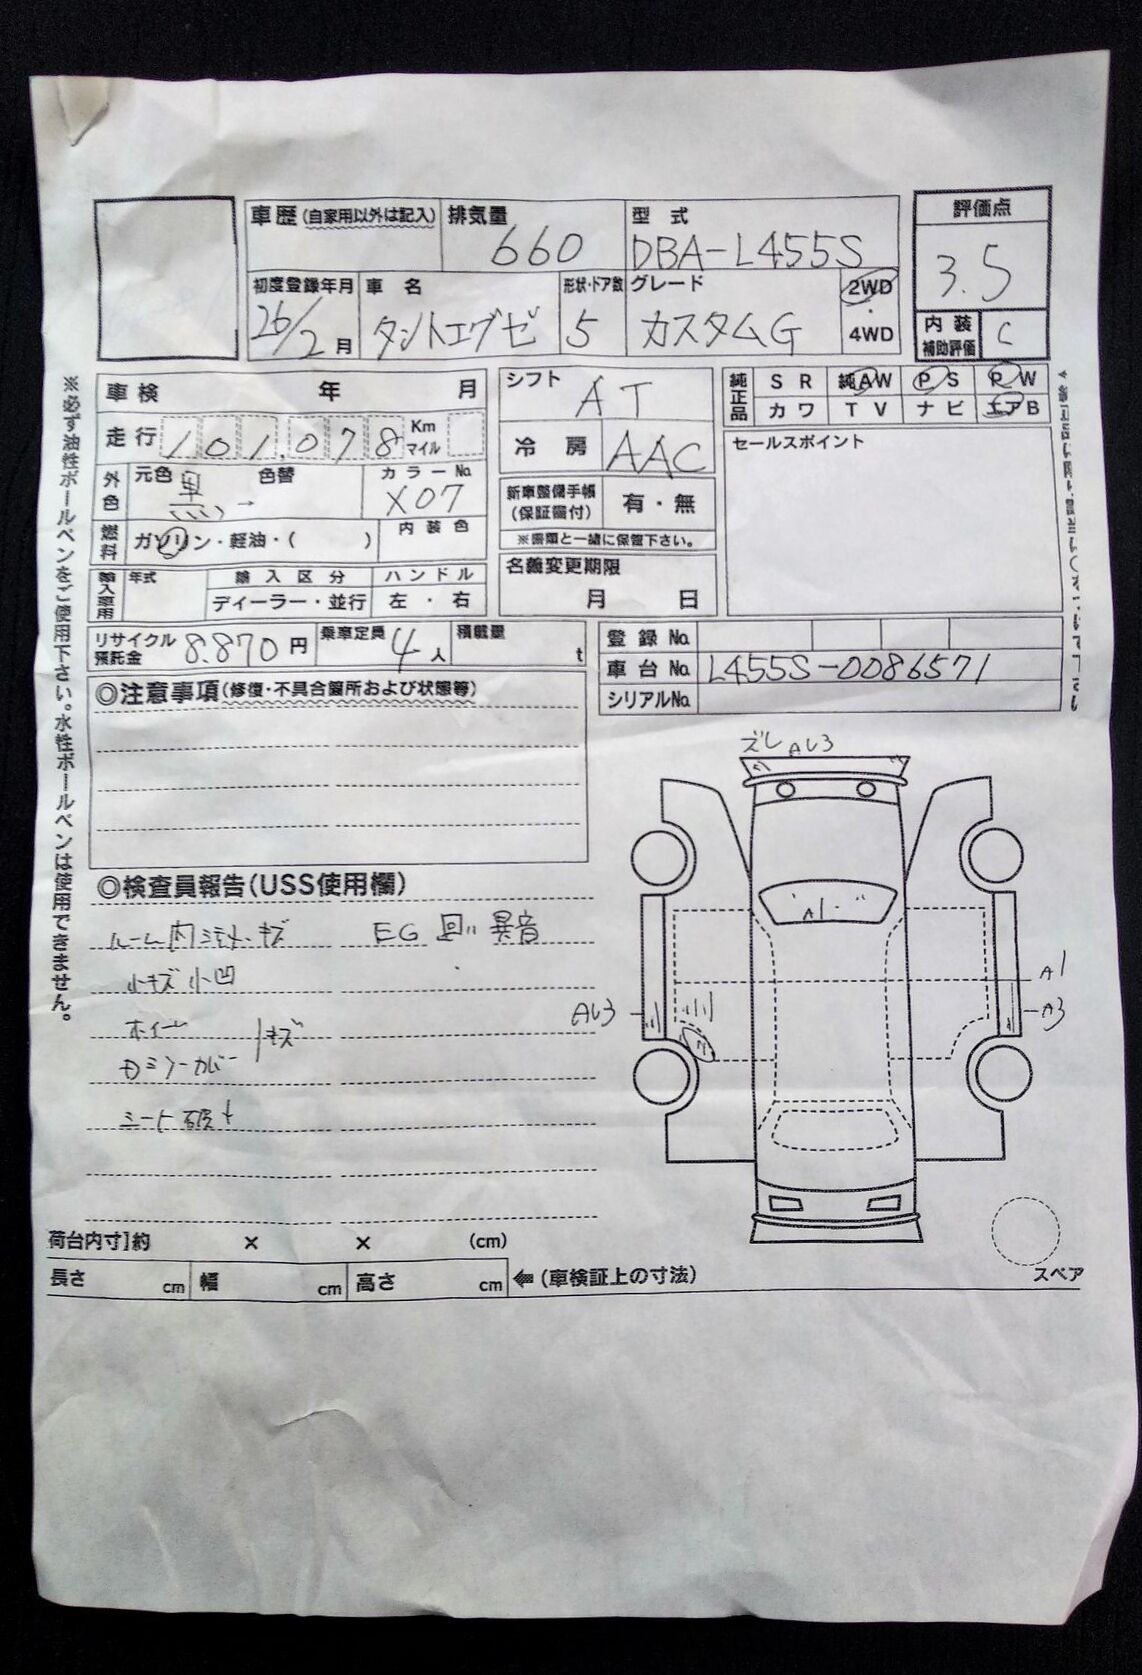 車歴（自家用以外は記入） 排気量 660 型式 DBA-L455S
評価点 3.5
初度登録年月 26/2月 車名 タントエグゼ 形状・ドア数 5 グレード カスタムG 2WD・4WD
内装補助評価 C
車検 年 月
走行 101,078 Km マイル
外色 元色 黒 → 色替 カラーNo. X07
燃料 ガソリン・軽油・( ) 内装色
輸入車用 年式 輸入区分 ディーラー・並行 ハンドル 左・右
シフト AT
冷房 AAC
新車整備手帳（保証書付） 有・無
※書類と一緒に保管下さい。
名義変更期限 月 日
純正品 SR 純AW PS PW
カワ TV ナビ エアB
セールスポイント
リサイクル預託金 8,870円 乗車定員 4人 積載量 t
登録No.
車台No. L455S-0086571
シリアルNo.
◎注意事項（修復・不具合箇所および状態等）
◎検査員報告（USS使用欄）
ルーム内 キズ EG 異音
小キズ 小凹
キズ
ズレ AU3
A1
A1
AU3
A3
荷台内寸］約 × × (cm)
長さ cm 幅 cm 高さ cm ⇐（車検証上の寸法）
スペア
※必ず油性ボールペンをご使用下さい。水性ボールペンは使用できません。